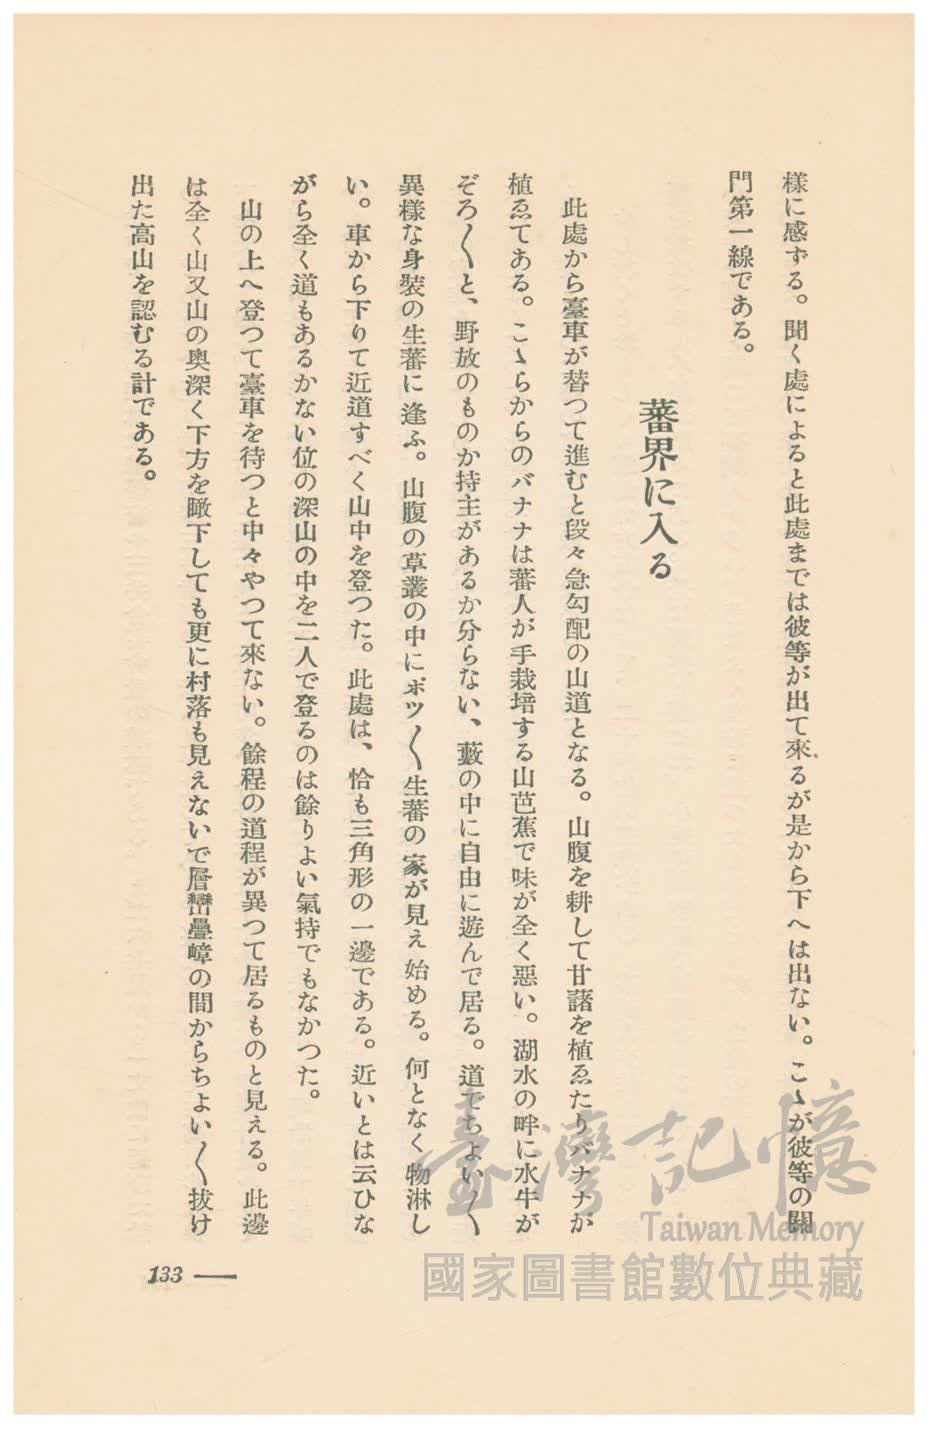 樣に感ずる。聞く處によると此處までは彼等が出て來るが是から下へは出ない。こゝが彼等の關
門第一線である。
蕃界に入る
此處から臺車が替つて進むと段々急勾配の山道となる。山腹を耕して甘藷を植ゑたりバナナが
植ゑてある。こゝらからのバナナは蕃人が手栽培する山芭蕉で味が全く惡い。湖水の畔に水牛が
ぞろ〱と、野放のものか持主があるか分らない、藪の中に自由に遊んで居る。道でちよい〱
異樣な身裝の生蕃に逢ふ。山腹の草叢の中にポツ〱生蕃の家が見え始める。何となく物淋し
い。車から下りて近道すべく山中を登つた。此處は、恰も三角形の一邊である。近いとは云ひな
がら全く道もあるかない位の深山の中を二人で登るのは餘りよい氣持でもなかつた。
山の上へ登つて臺車を待つと中々やつて來ない。餘程の道程が異つて居るものと見える。此邊
は全く山又山の奧深く下方を瞰下しても更に村落も見えないで層巒疊嶂の間からちよい〱拔け
出た高山を認むる計である。
133
臺灣記憶
Taiwan Memory
國家圖書館數位典藏